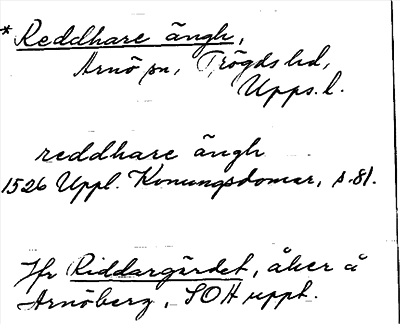 * Reddhare ängh,
Arnö sn, Trögds hd,
Upps. l.
reddhare ängh
1526 Uppl. Konungsdomar, s. 81.
Jfr Riddargärdet, åker å
Arnöberg, SOH uppt.